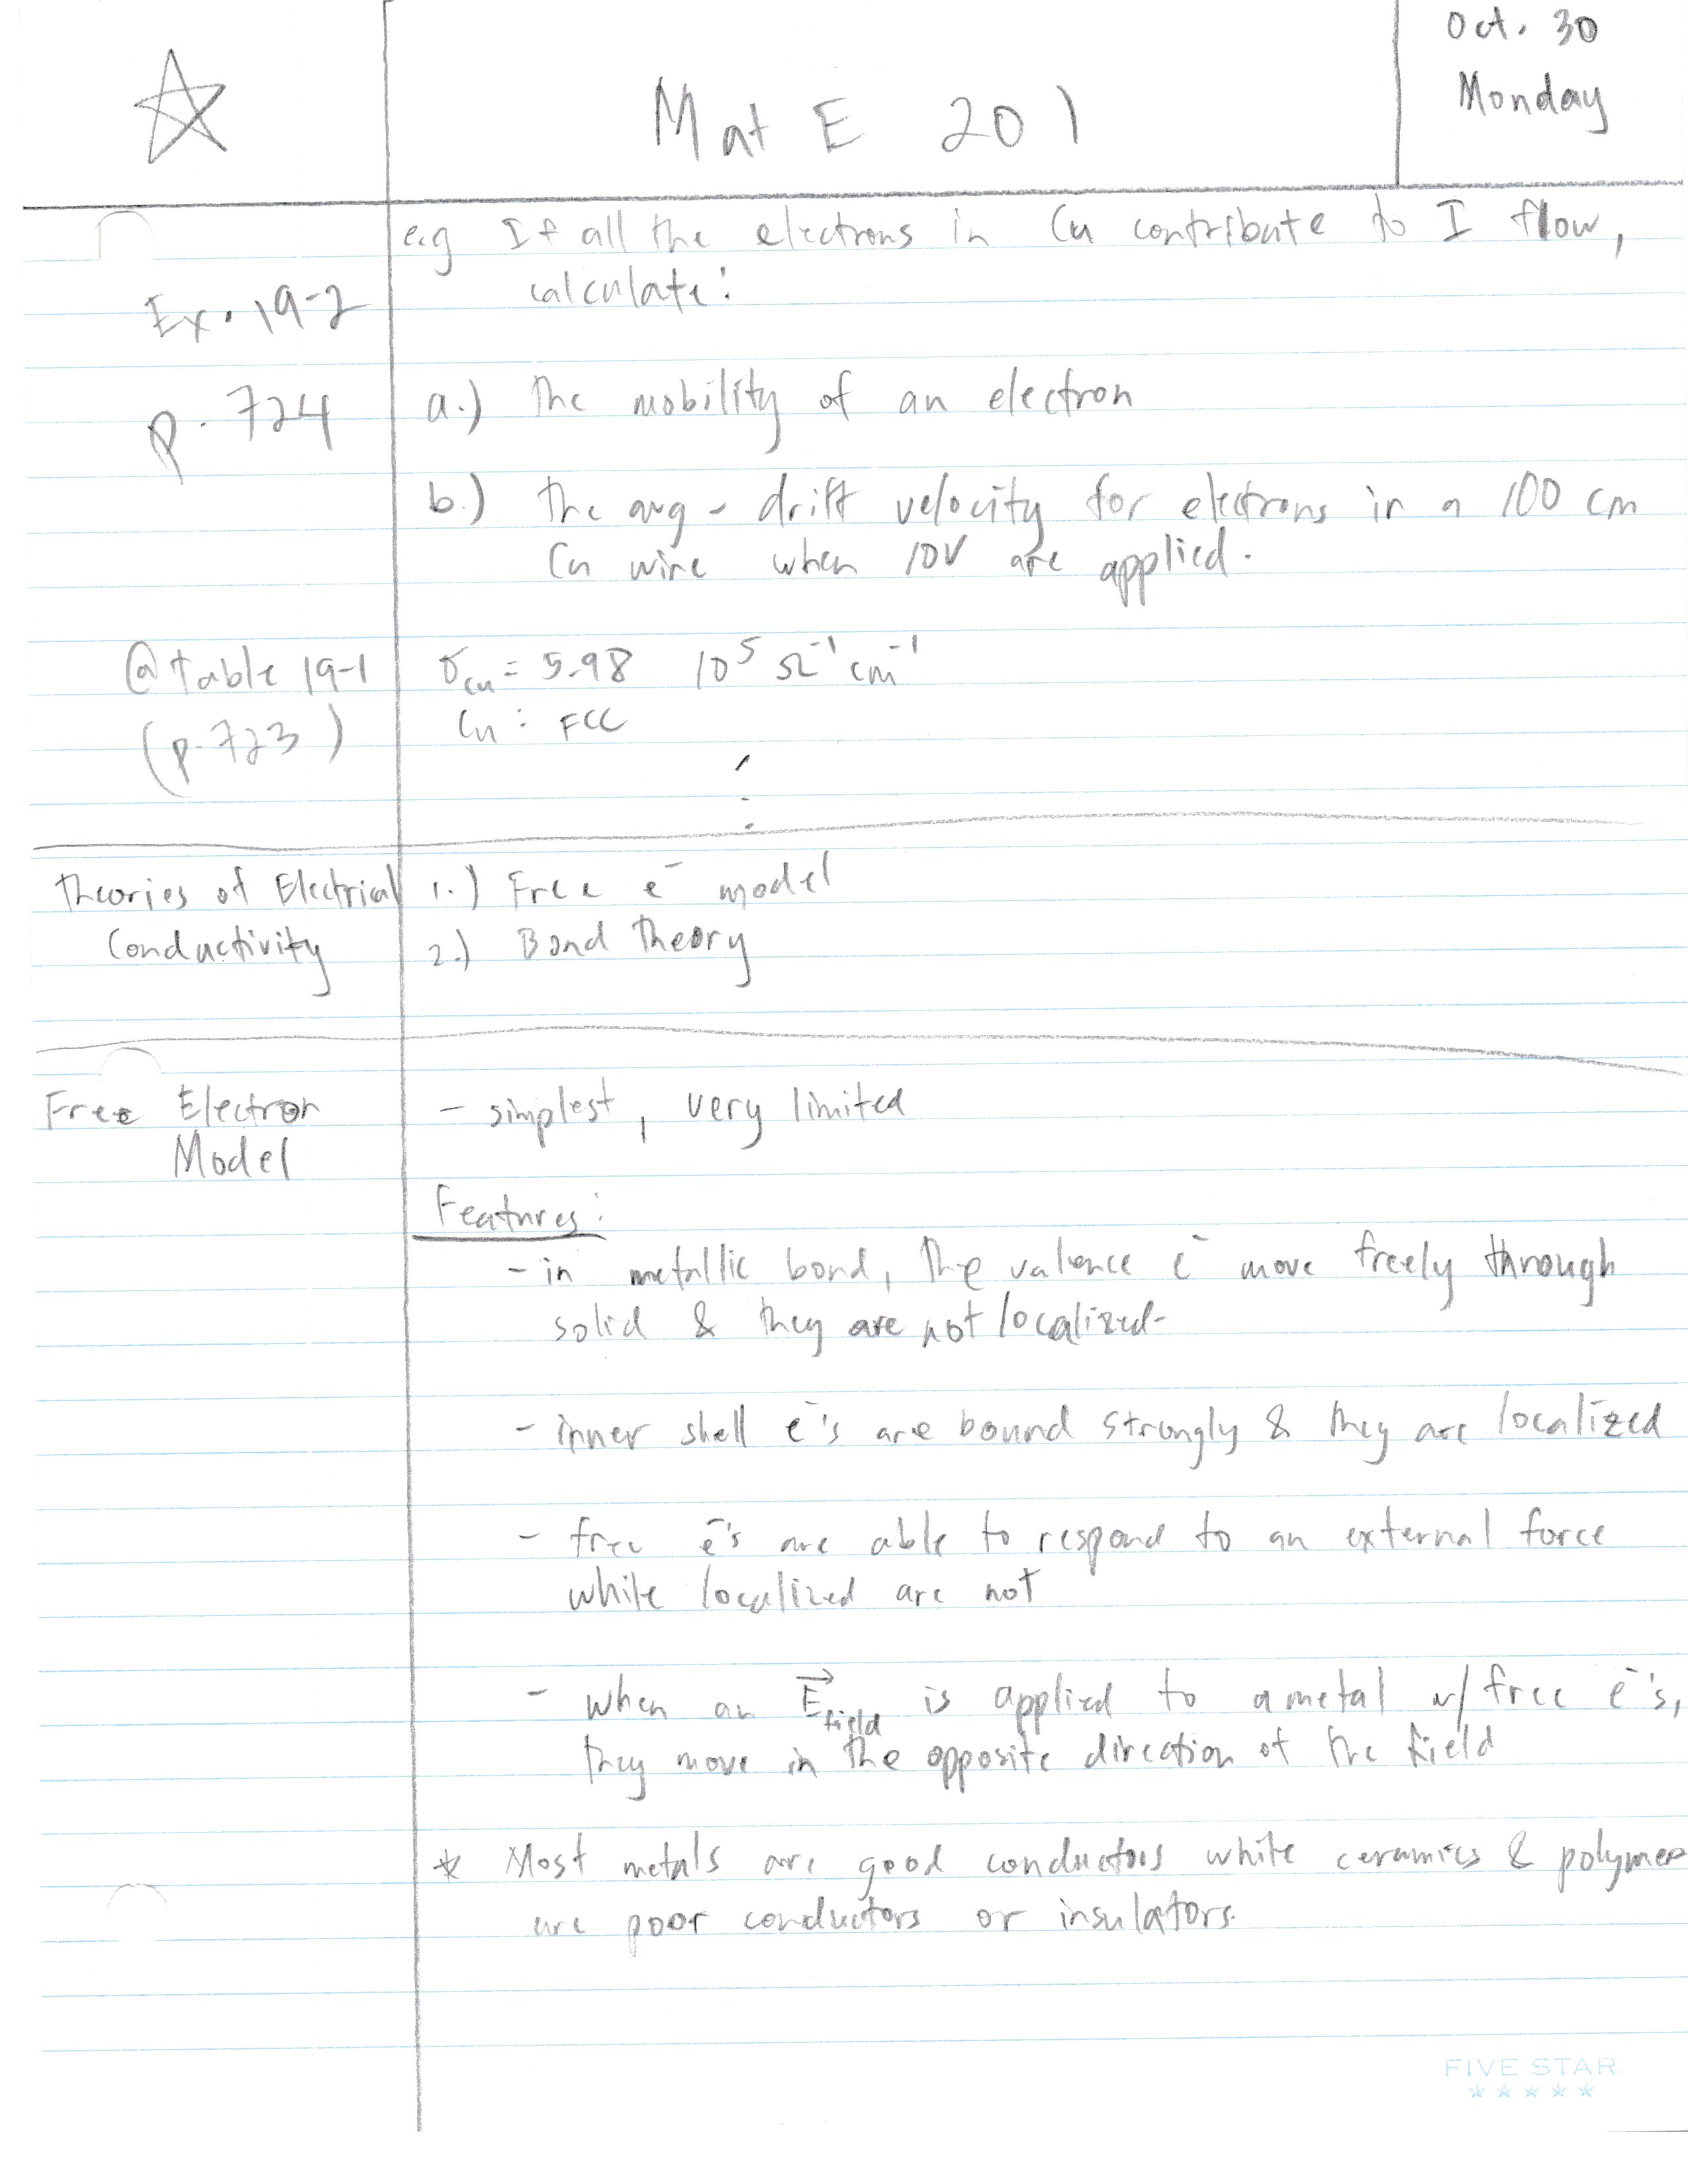 Oct. 30
Monday
Mat E 201
e.g If all the electrons in Cu contribute to I flow,
calculate:
Ex. 19-2
p. 724
a.) The mobility of an electron
b.) The avg - drift velocity for electrons in a 100 cm
Cu wire when 10V are applied.
@ table 19-1
(p. 723)
σcu = 5.98 10⁵ Ω⁻¹ cm⁻¹
Cu : FCC
Theories of Electrical
Conductivity
1.) Free e⁻ model
2.) Band Theory
Free Electron
Model
- simplest, very limited
Features:
- in metallic bond, The valence e⁻ move freely through
solid & they are not localized-
- inner shell e⁻'s are bound strongly & they are localized
- free e⁻'s are able to respond to an external force
while localized are not
- when an E⃗field is applied to a metal w/ free e⁻'s,
they move in the opposite direction of the field
* Most metals are good conductors while ceramics & polymer
are poor conductors or insulators.
FIVE STAR